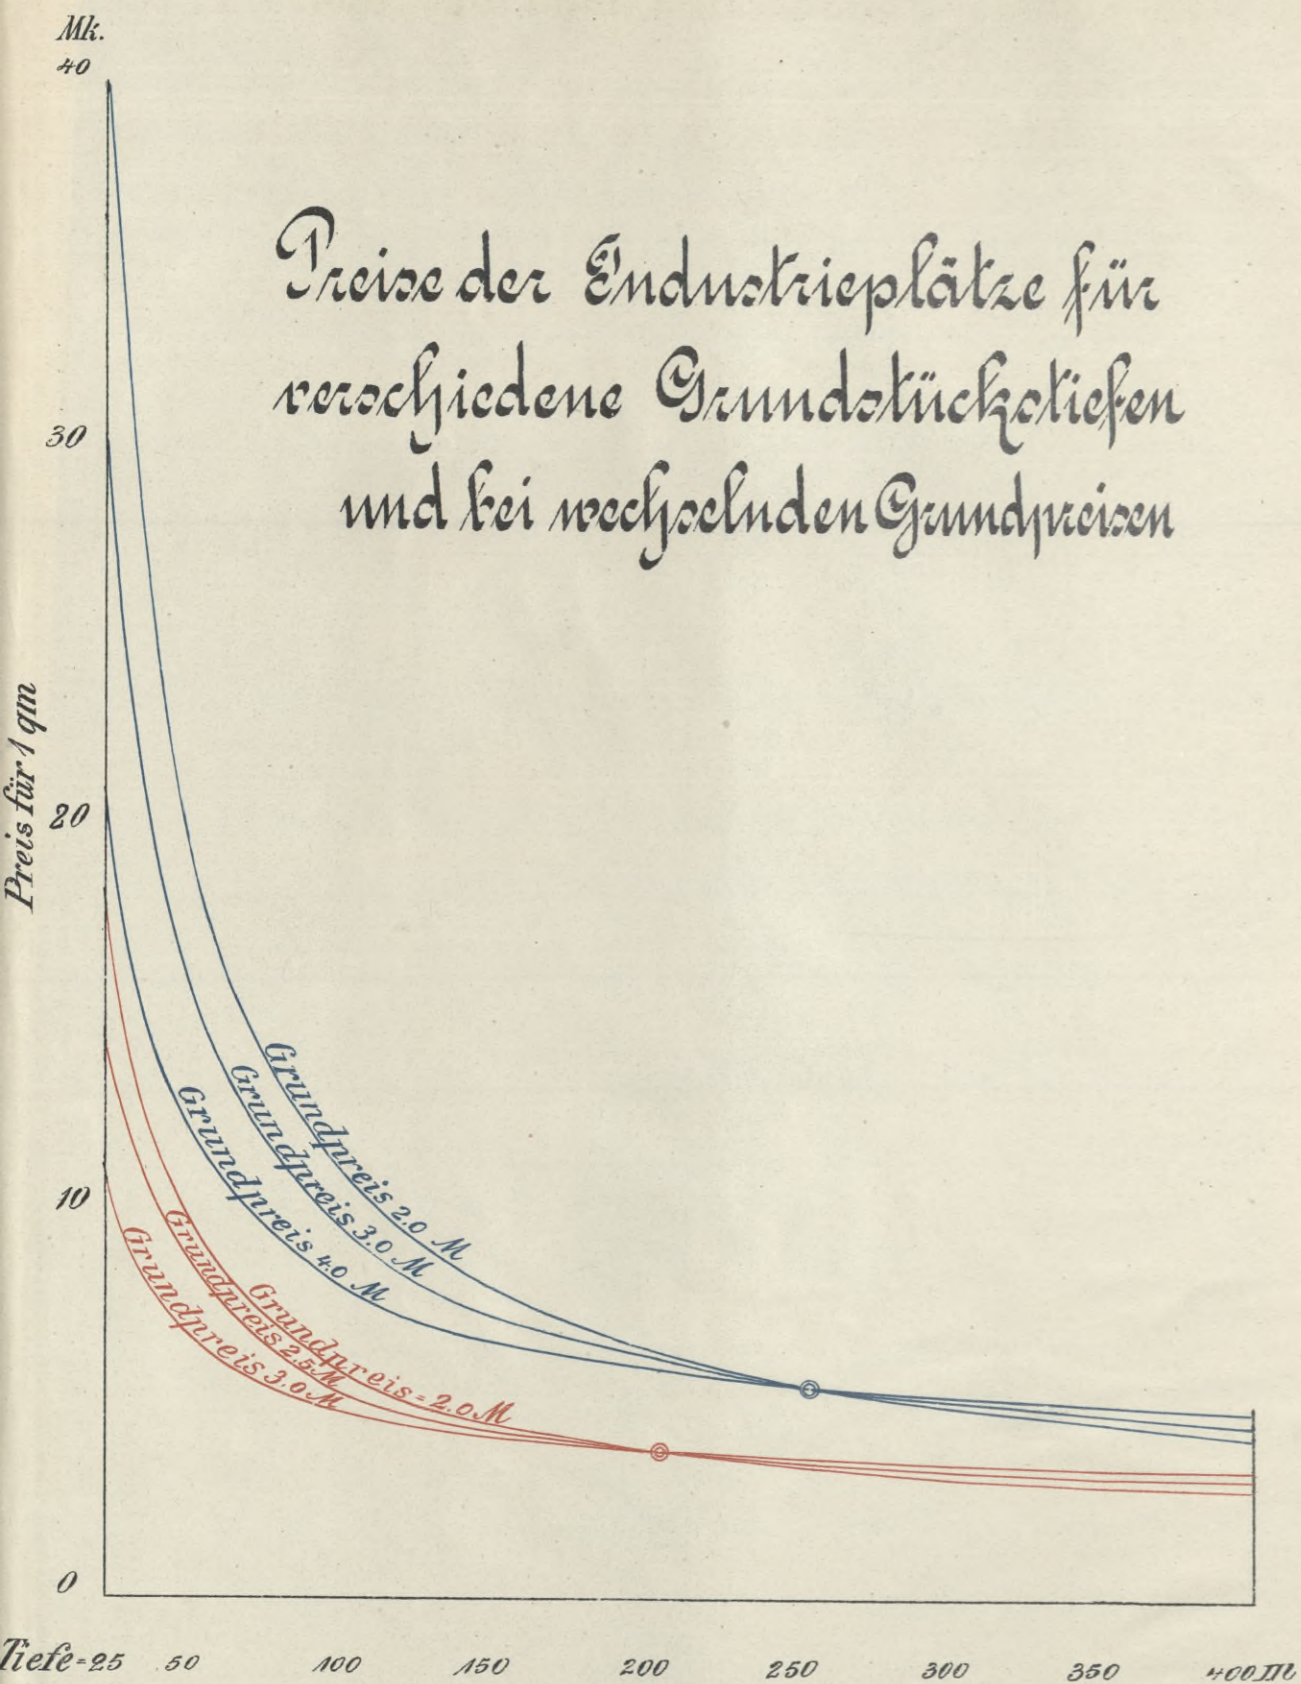 Mk.
40
Preise der Industrieplätze für
verschiedene Grundstückstiefen
und bei wechselnden Grundpreisen
30
Preis für 1 qm
20
10
0
Grundpreis 2.0 M
Grundpreis 3.0 M
Grundpreis 4.0 M
Grundpreis = 2.0 M
Grundpreis 2.5 M
Grundpreis 3.0 M
Tiefe = 25 50 100 150 200 250 300 350 400 m